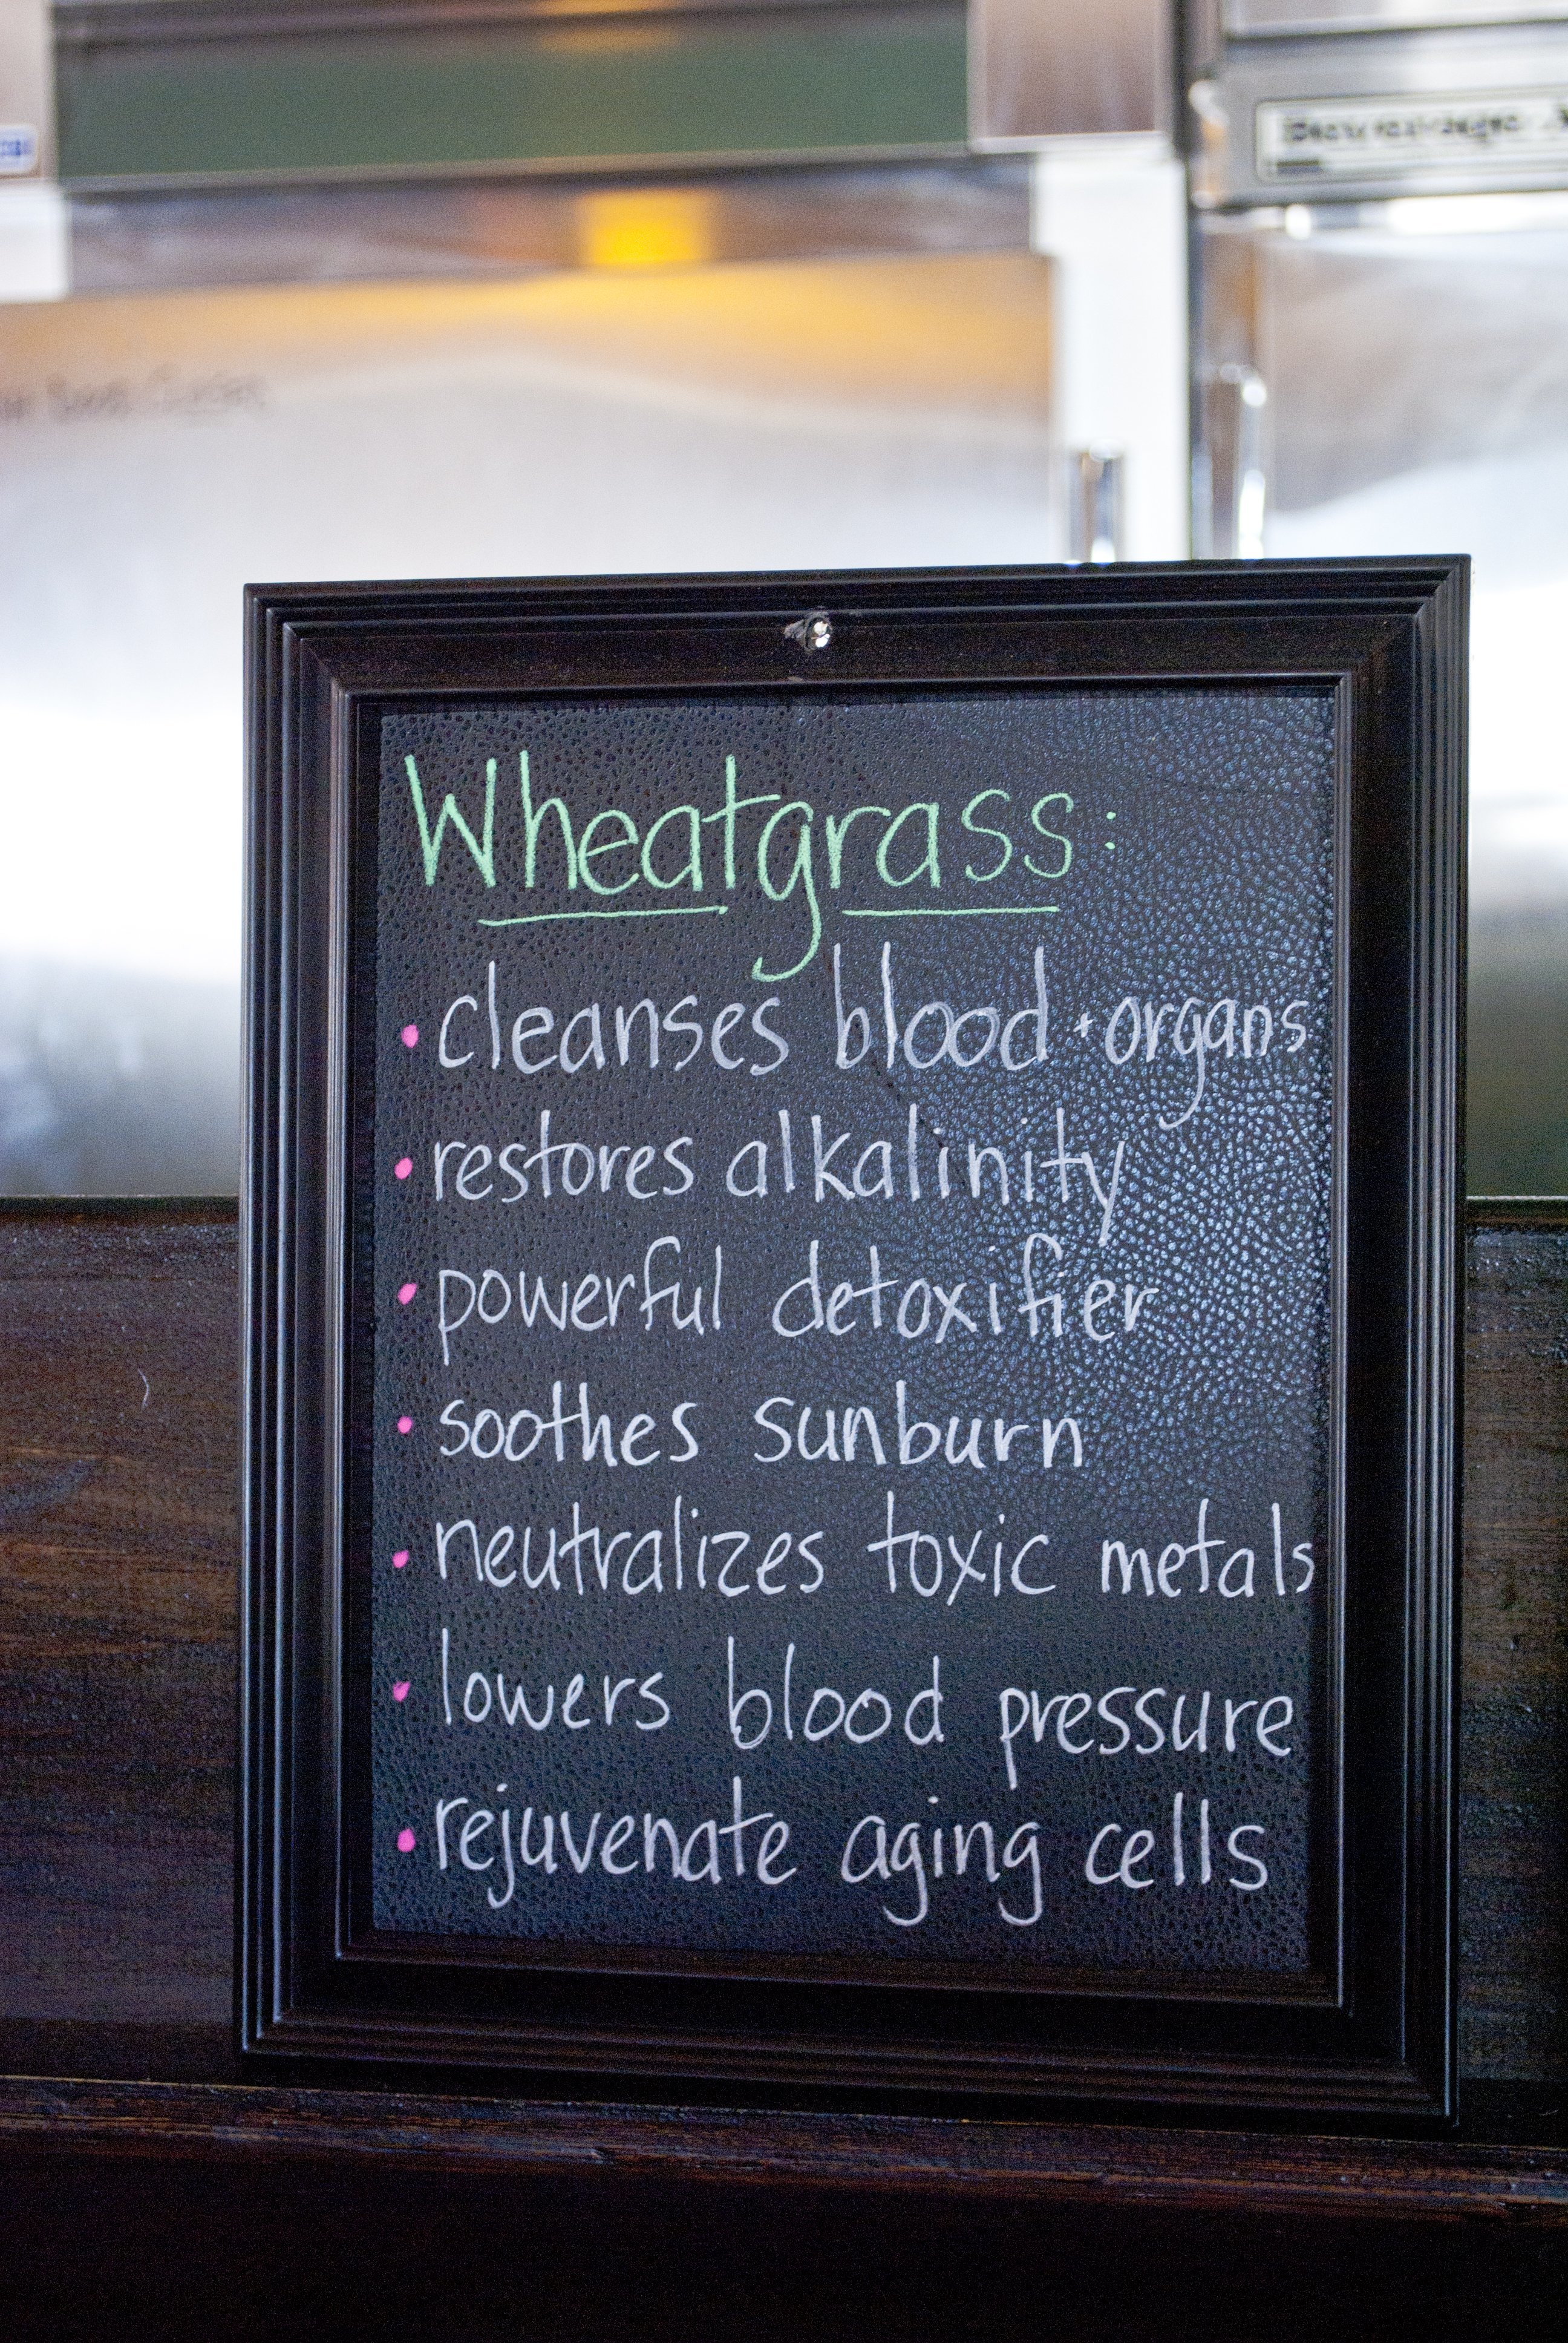 Beverage
Wheatgrass:
• cleanses blood + organs
• restores alkalinity
• powerful detoxifier
• soothes sunburn
• neutralizes toxic metals
• lowers blood pressure
• rejuvenate aging cells